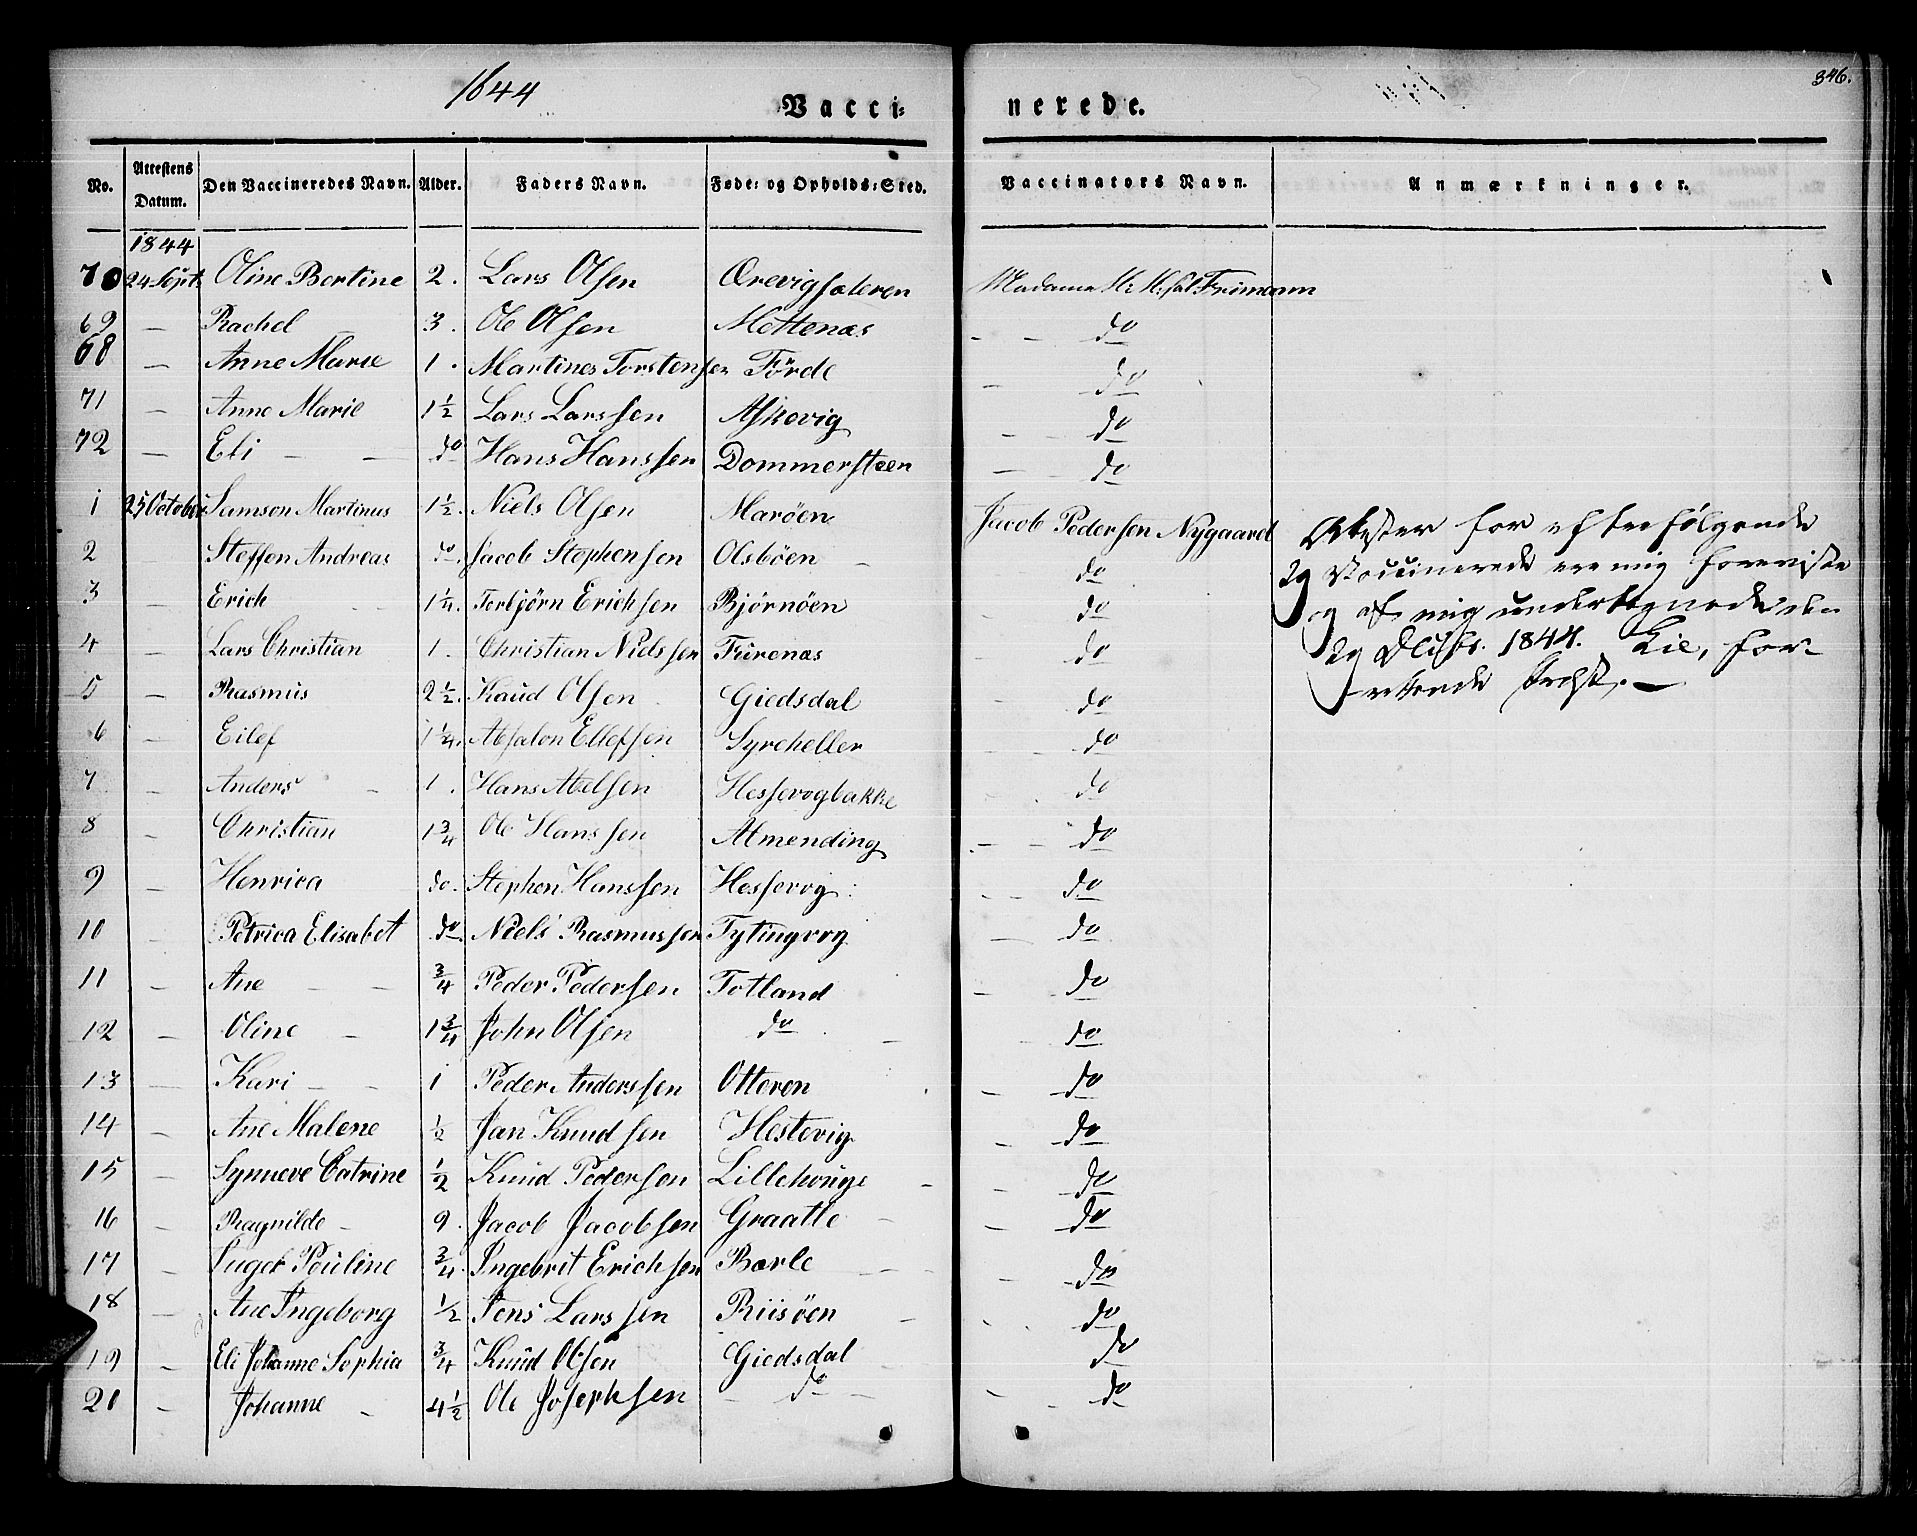 1844
Vacci= nerede.
346.
No. Attestens Datum. Den Vaccineredes Navn. Alder. Faders Navn. Føde= og Opholds=Sted. Vaccinators Navn. Anmærkninger.
1844
70 24 Sept. Oline Bertine 2. Lars Olsen Ørevigsæteren Madame H: H: Frimann
69 — Rachel 3. Ole Olsen Mettenæs - - do
68 — Anne Marie 1. Martines Torstensen Förde - do
71 — Anne Marie 1½ Lars Larssen Askevig - - do
72 — Eli - - do Hans Hanssen Dommersteen - - do
1 25 October Samson Martinus 1½. Niels Olsen Maröen Jacob Pedersen Nygaard
2 Steffen Andreas do. Jacob Stephensen Olsböen - do
3 Erich 1¼. Torbjörn Erichsen Björnöen do
4 — Lars Christian 1. Christian Nielssen Furenæs do
5 — Rasmus 2½. Knud Olsen Giedsdal do
6 — Eilef 1¼. Absalon Ellefsen Syreheller do
7 - Anders - 1. Hans Abelsen Hessevogbakke do
8 - Christian 1¾ Ole Hanssen Almending - - do
9 - Henrica do. Stephen Hanssen Hessevog: - - do
10 - Petrica Elisabet do. Niels Rasmussen Tytingvog — do
11 - Ane - - ¾ Peder Pedersen Totland - do
12 - Oline - 1¾ John Olsen do - do
13 - Kari - - 1 Peder Anderssen Otteren - do
14 - Ane Malene ½ Jan Knudsen Hestevig - do
15 - Synneve Catrine ½ Knud Pedersen Lillehouge - - do
16 - Ragnilde - 9. Jacob Jacobsen Graatle - - do
17 - Inger Pouline ¾. Ingebrit Erichsen Barle - - - do
18 - Ane Ingeborg ½ Jens Larssen Riisöen - - - do
19 - Eli Johanne Sophia ¾ Knud Olsen Giedsdal - do
20 - Johanne - 4½ Ole Josephsen - do - - do
Attester for efterfølgende
29 Vaccinerede ere mig foreviste
og af mig undertegnede den
29 Octbr. 1844. Lie, for-
rettende Præst. —